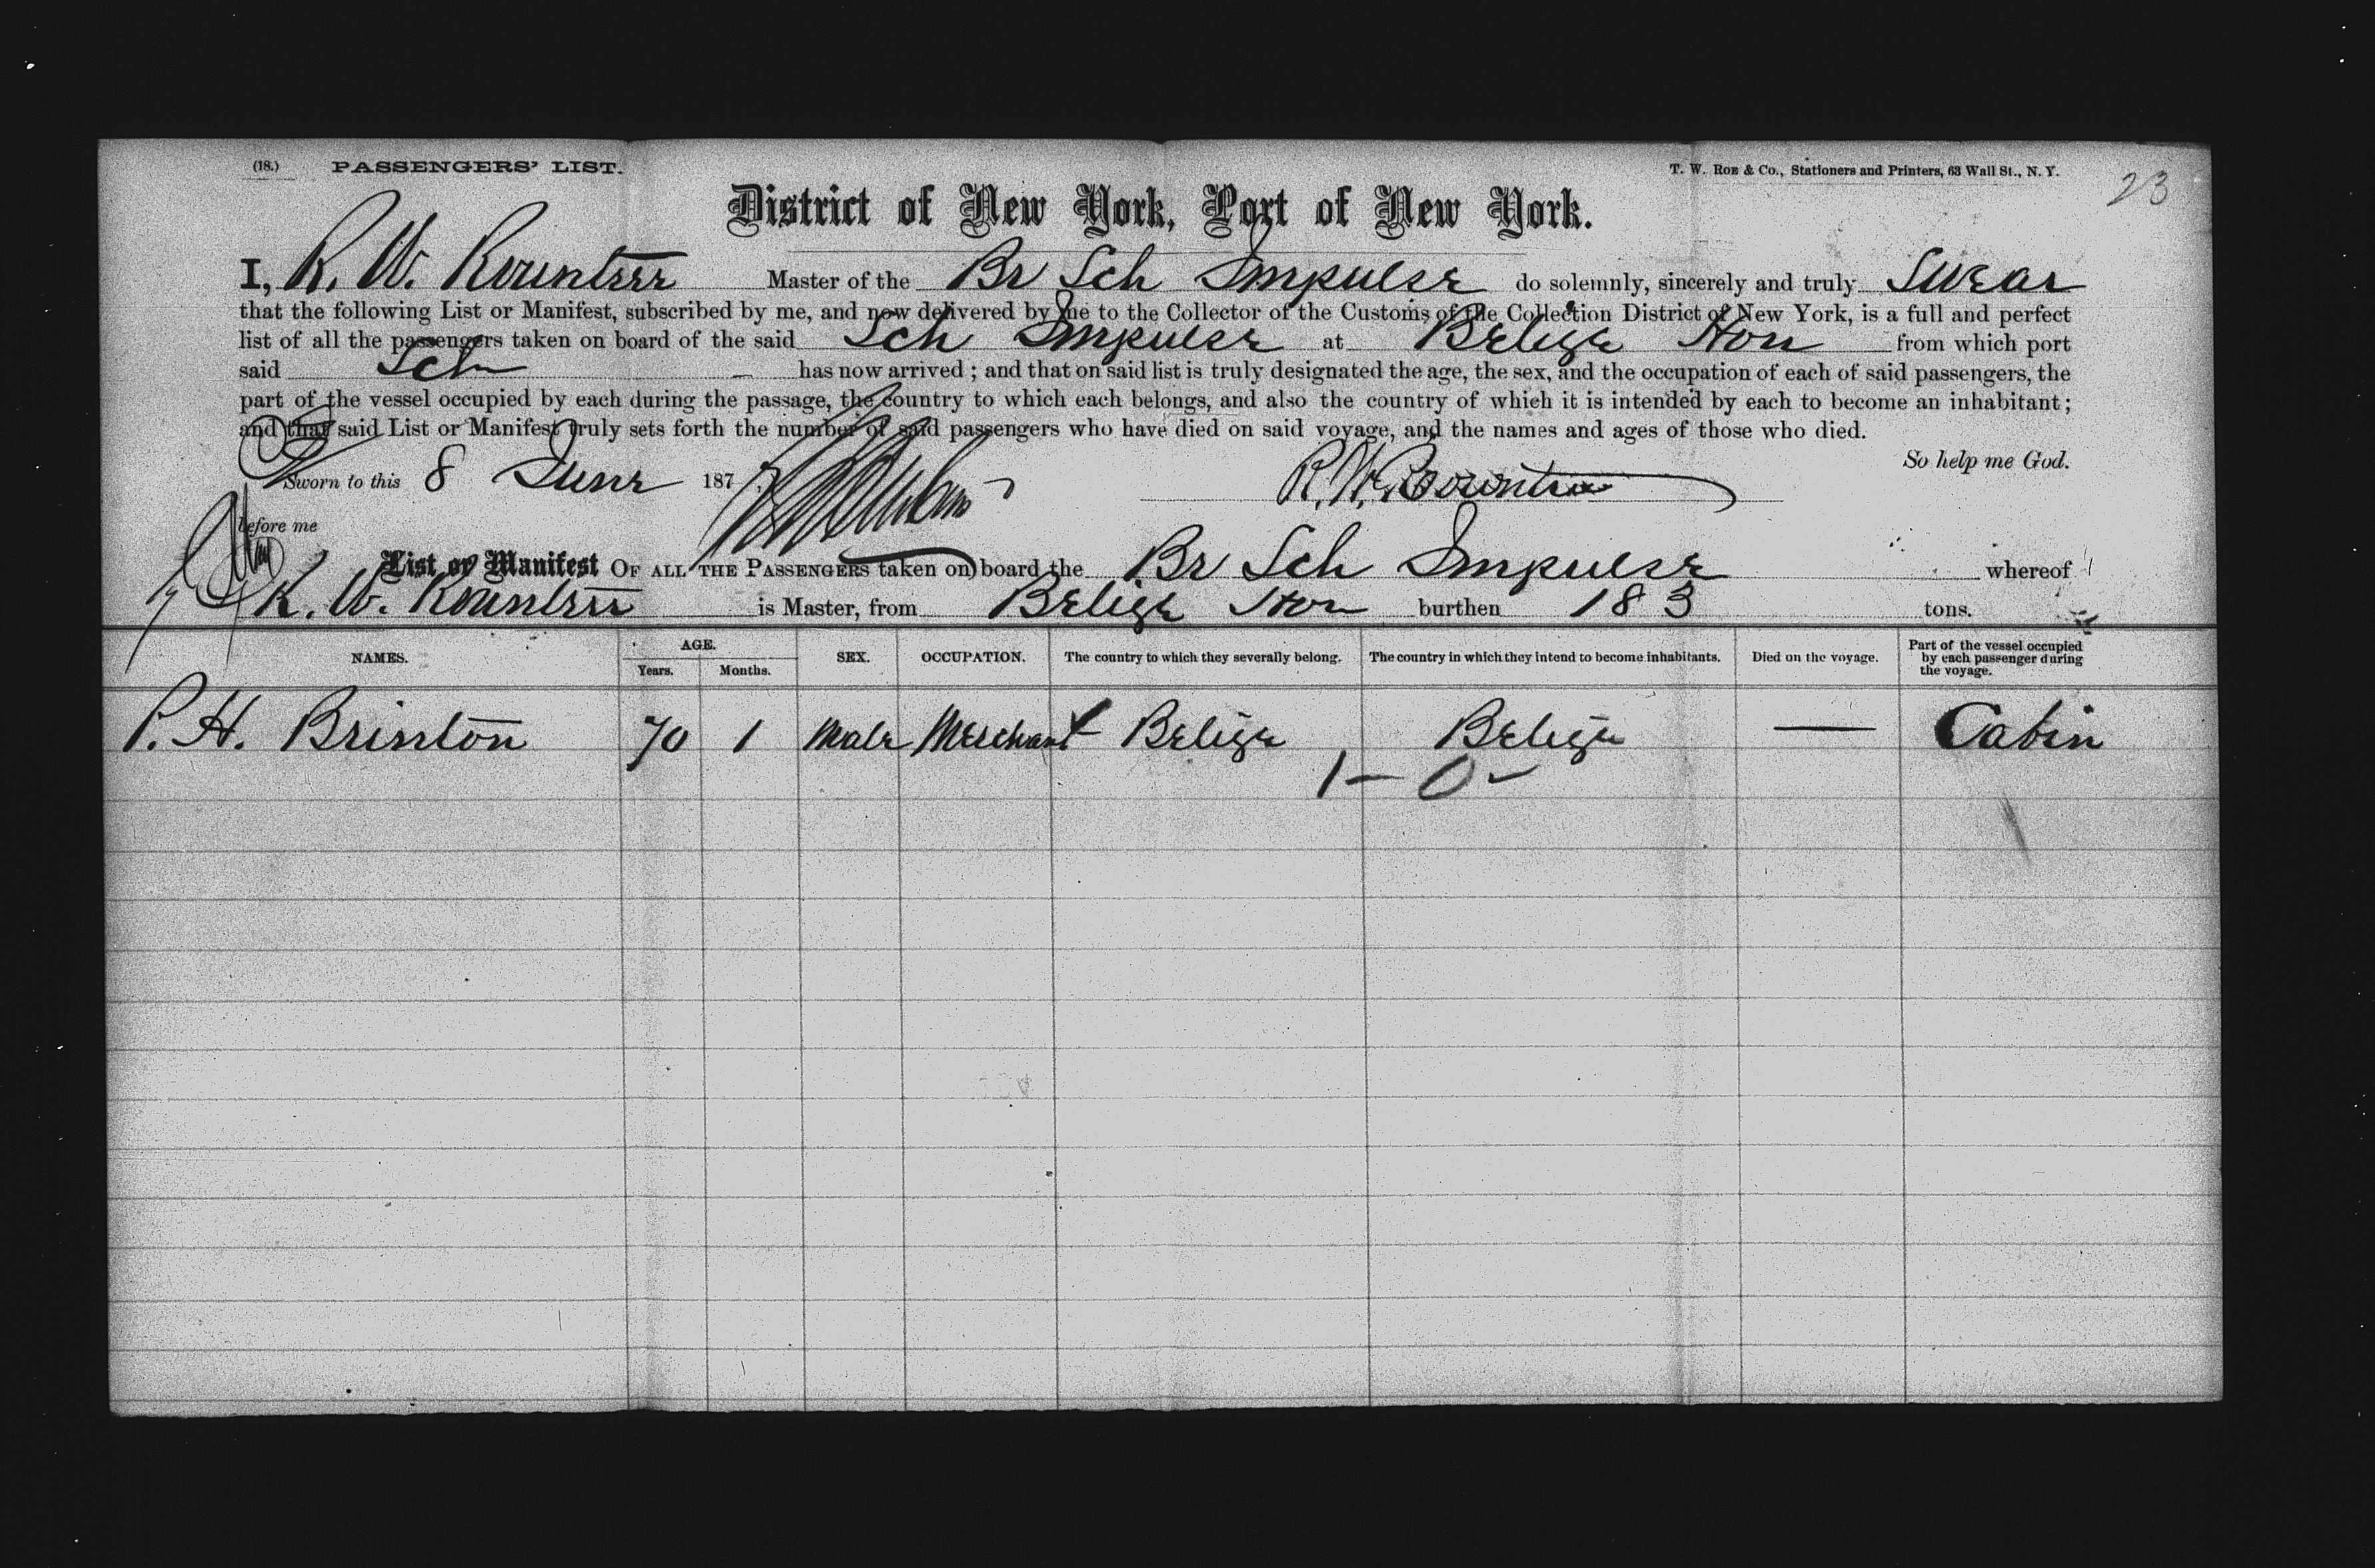 (18.) PASSENGERS' LIST. T. W. ROE & Co., Stationers and Printers, 63 Wall St., N. Y. 23
District of New York, Port of New York.
I, R. W. Rountree Master of the Br Sch Impulse do solemnly, sincerely and truly Swear
that the following List or Manifest, subscribed by me, and now delivered by me to the Collector of the Customs of the Collection District of New York, is a full and perfect
list of all the passengers taken on board of the said Sch Impulse at Belize Hon from which port
said Sch has now arrived; and that on said list is truly designated the age, the sex, and the occupation of each of said passengers, the
part of the vessel occupied by each during the passage, the country to which each belongs, and also the country of which it is intended by each to become an inhabitant;
and that said List or Manifest truly sets forth the number of said passengers who have died on said voyage, and the names and ages of those who died.
So help me God.
Sworn to this 8 June 187 R. W. Rountree
before me
List or Manifest OF ALL THE PASSENGERS taken on board the Br Sch Impulse whereof
R. W. Rountree is Master, from Belize Hon burthen 183 tons.
NAMES. AGE. Years. Months. SEX. OCCUPATION. The country to which they severally belong. The country in which they intend to become inhabitants. Died on the voyage. Part of the vessel occupied by each passenger during the voyage.
P. H. Brinton 70 1 Male Merchant Belize Belize — Cabin
1 — 0 -